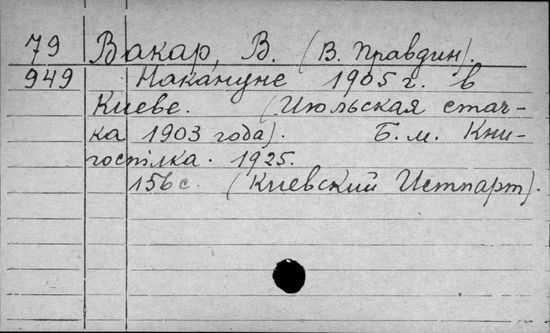 79 Вакар, В. (В. Правдин).
949 Накануне 1905 г. в
Киеве. (Июльская стач-
ка 1903 года). Б. м. Кни-
госпілка. 1925.
156 с. (Киевский Истпарт).